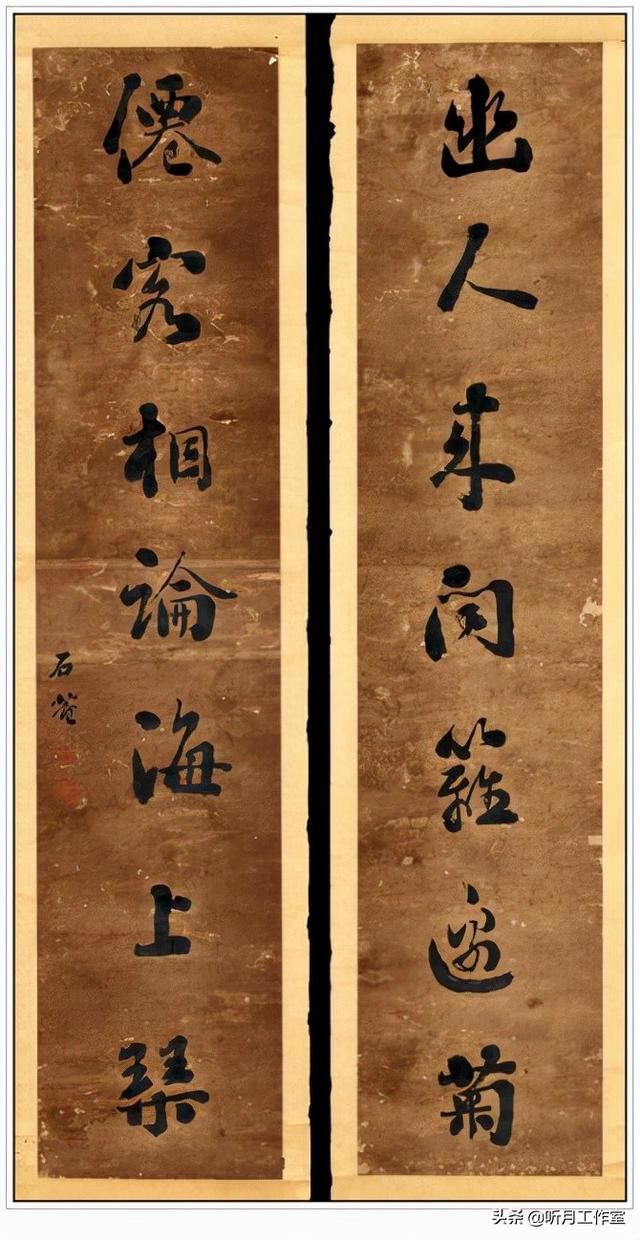 幽人来問籬邊菊
僊客相論海上琹
石菴
头条 @听月工作室